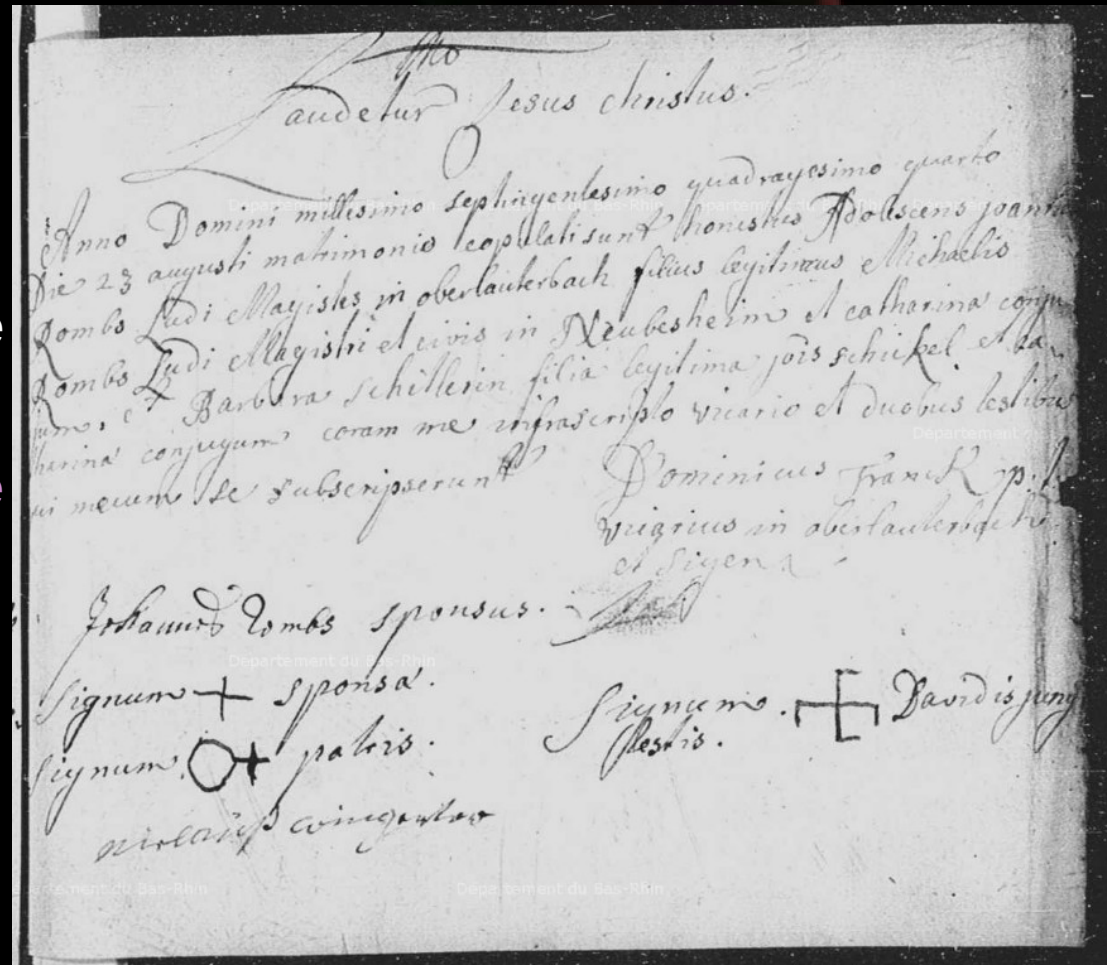 Laudetur Jesus christus.
Anno Domini millesimo septingentesimo quadragesimo quarto
Die 23 augusti matrimonio copulati sunt honestus Adolescens joannes
Rombs Ludi Magister in oberlauterbach filius legitimus Michaelis
Rombs Ludi Magistri et civis in Neubesheim et catharina conju
jum, et Barbara schillerin filia legitima jois schickel et ca
tharina conjugum coram me infrascripto vicario et duobus testibus
qui mecum se subscripserunt
Dominicus Franck p.
vicarius in oberlauterbach
et Sigen
Johannes Rombs sponsus.
Signum + sponsa.
Signum patris.
Signum Davidis jung
testis.
Département du Bas-Rhin